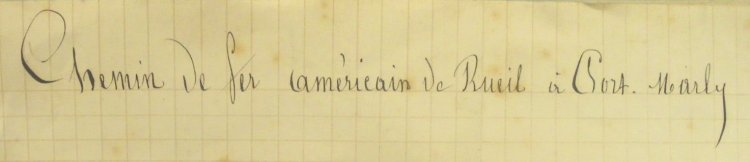 Chemin de fer américain de Rueil à Port-Marly